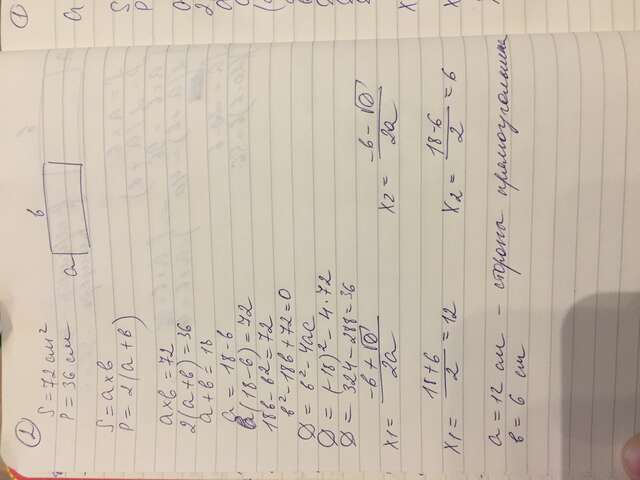 2
S = 72 см²
P = 36 см
в
a
S = a × в
P = 2(a + в)
a × в = 72
2(a + в) = 36
a + в = 18
a = 18 - в
в(18 - в) = 72
18в - в² = 72
в² - 18в + 72 = 0
D = в² - 4ac
D = (-18)² - 4 · 72
D = 324 - 288 = 36
x1 = (-в + √D)/2a x2 = (-в - √D)/2a
x1 = (18+6)/2 = 12 x2 = (18-6)/2 = 6
a = 12 см - стороны прямоугольника
в = 6 см
1
a
S
P